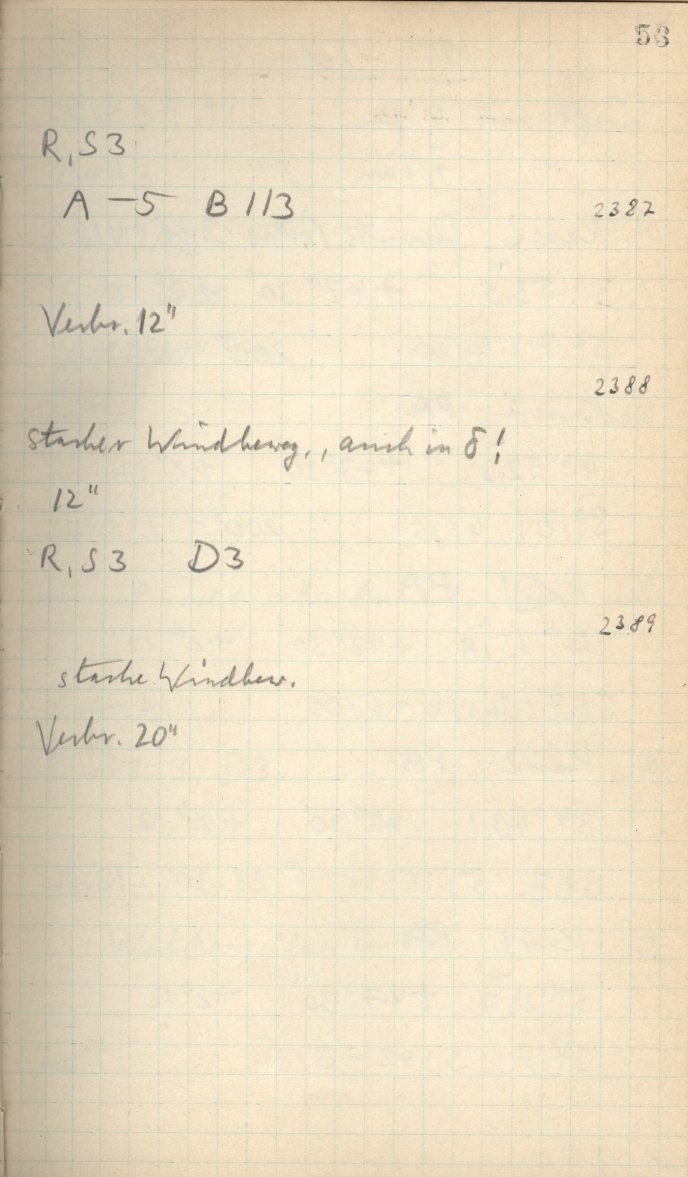 53
R, S 3
A -5 B 113 2387
Verbr. 12"
2388
starker Windbeweg., auch in δ!
12"
R, S 3 D3
2389
starke Windbew.
Verbr. 20"